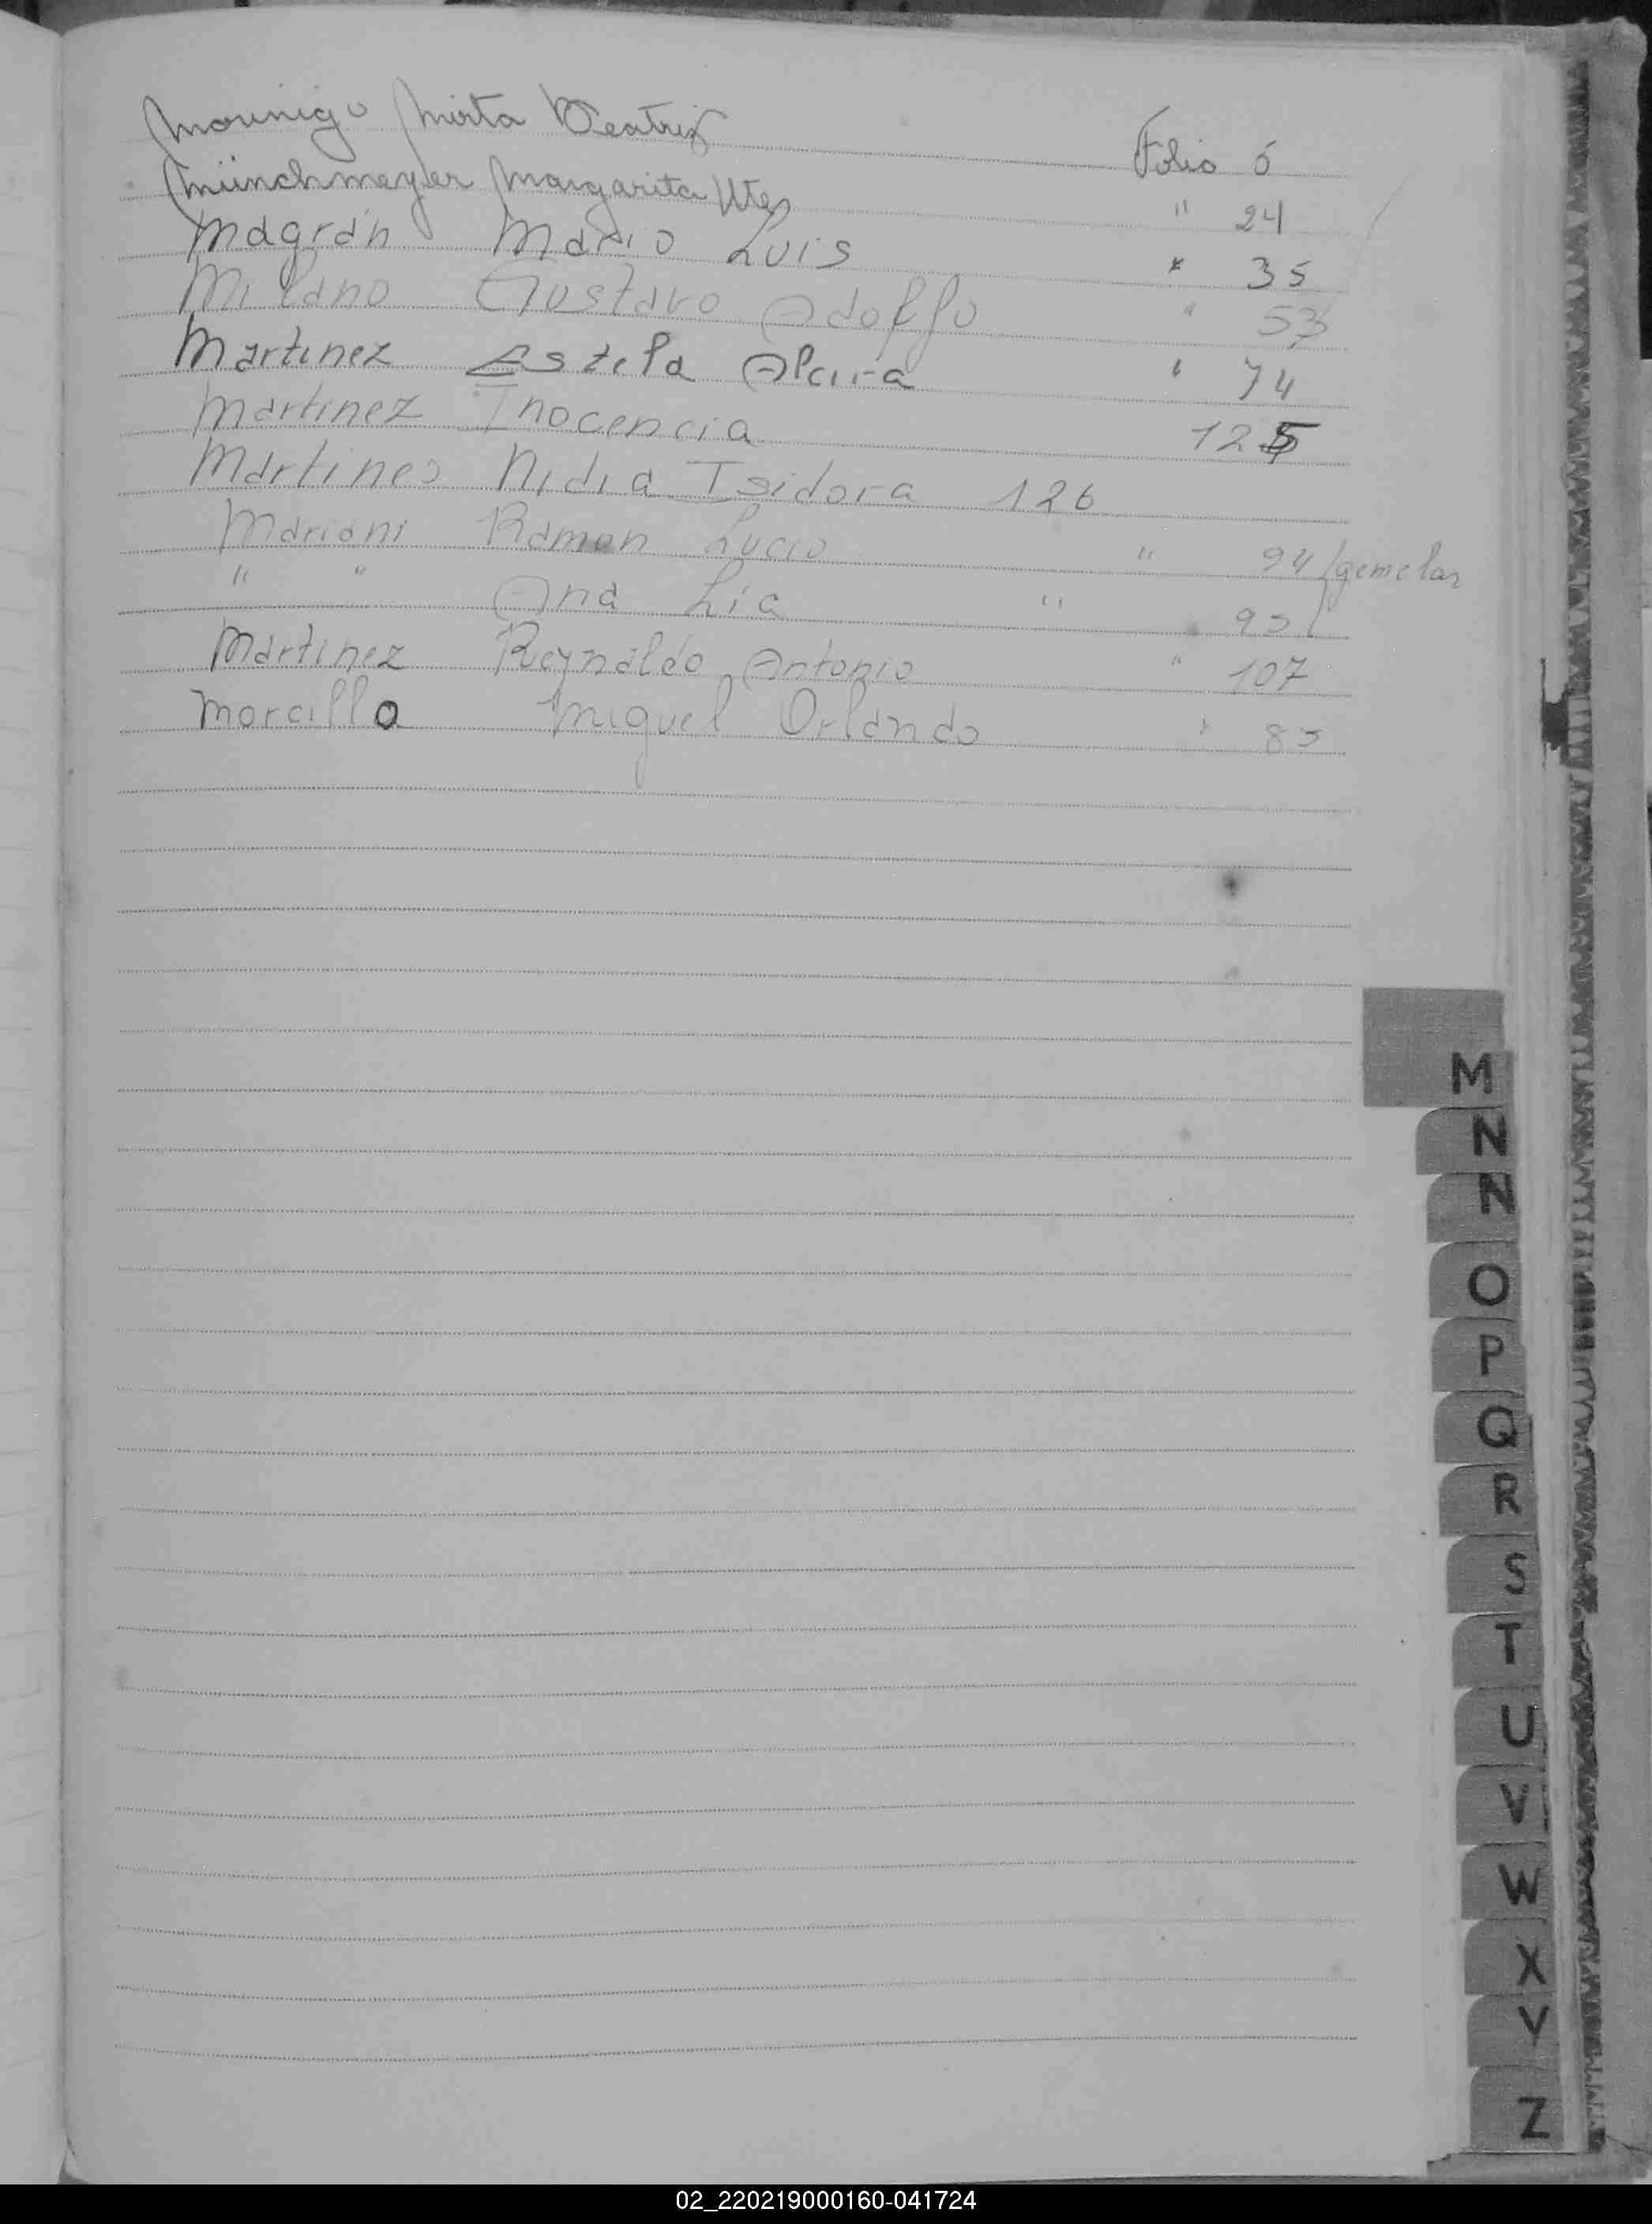 Mounigo Mirta Beatriz Folio 6
Münchmeyer Margarita Ute " 24
Magrán Mario Luis " 35
Milano Gustavo Adolfo " 53
Martinez Estela Alcira " 74
Martinez Inocencia 125
Martines Nidia Isidora 126
Mariani Ramon Lucio " 94 / gemelar
" " Ana Lía " 95 /
Martinez Reynaldo Antonio " 107
Morcillo Miguel Orlando " 85
M
N
N
O
P
Q
R
S
T
U
V
W
X
Y
Z
02_220219000160-041724